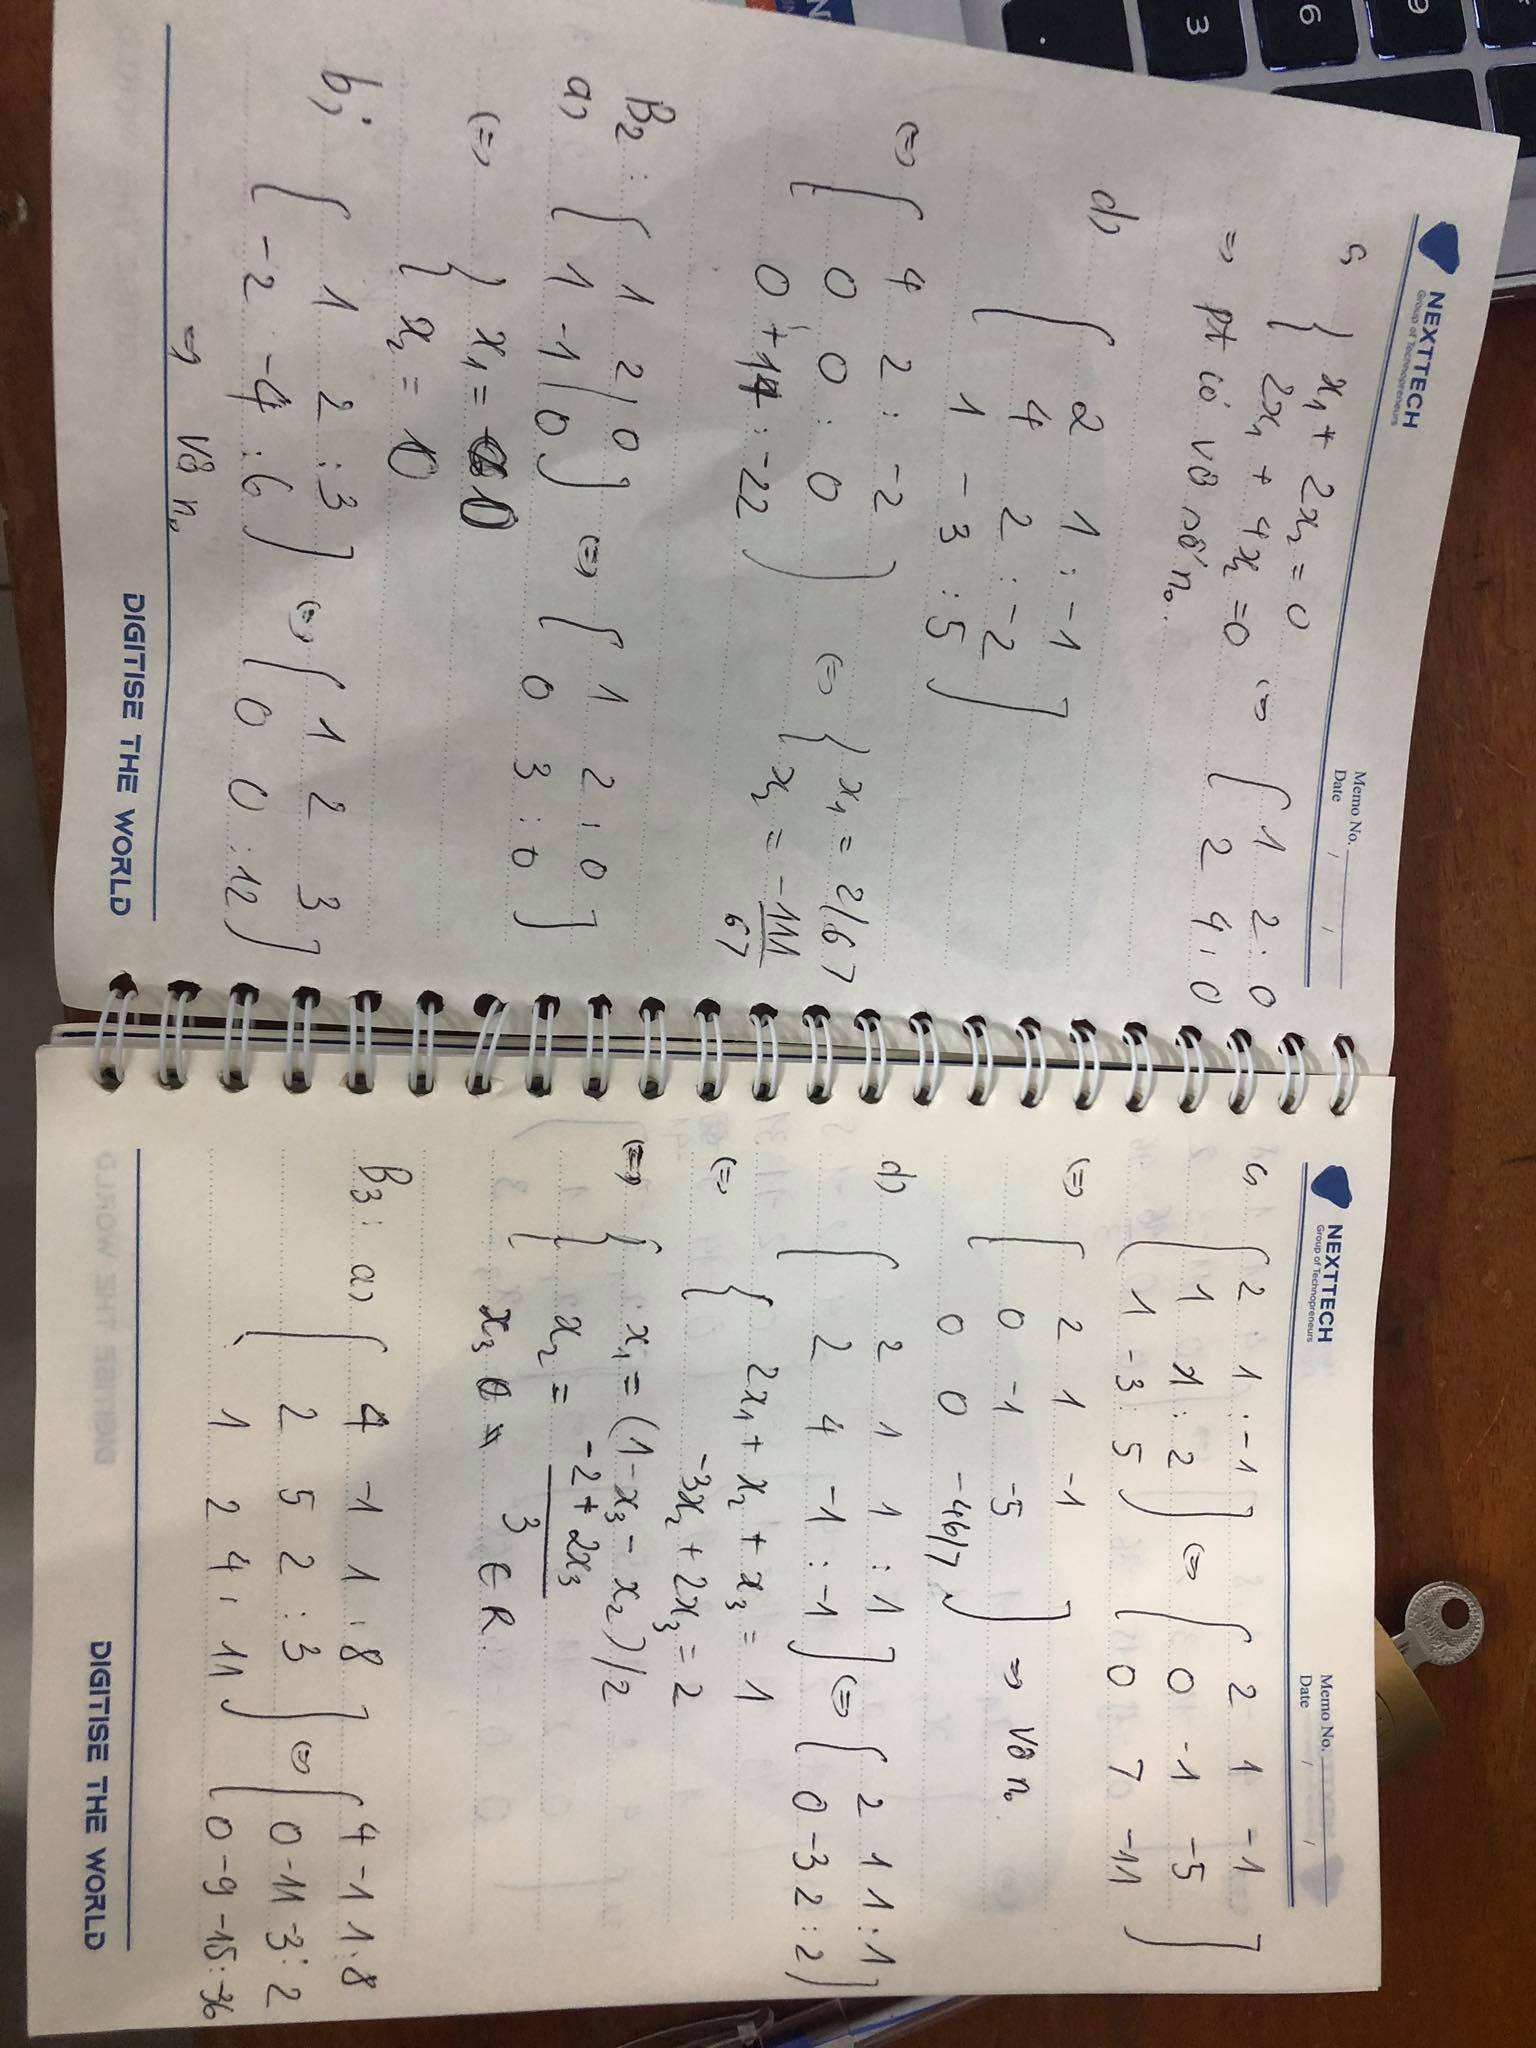 NEXTTECH
Group of Technopreneurs
Memo No.
Date / /
c, { x₁ + 2x₂ = 0
2x₁ + 4x₂ = 0 <=> [ 1 2 : 0
2 4 : 0
=> pt có vô số n₀.
d) [ 2 1 : -1
4 2 : -2
1 -3 : 5 ]
<=> [ 4 2 : -2
0 0 : 0
0 +14 : -22 ] <=> { x₁ = 2/67
x₂ = -111/67
B₂ :
a) [ 1 2 | 0
1 -1 | 0 ] <=> [ 1 2 : 0
0 3 : 0 ]
<=> { x₁ = 0
x₂ = 0
b, [ 1 2 : 3
-2 -4 : 6 ] <=> [ 1 2 3
0 0 : 12 ]
=> Vô n₀
DIGITISE THE WORLD
NEXTTECH
Group of Technopreneurs
Memo No.
Date / /
c, [ 2 1 : -1
1 1 : 2
1 -3 : 5 ] <=> [ 2 1 -1
0 -1 -5
0 7 -11 ]
<=> [ 2 1 -1
0 -1 -5
0 0 -46/7 ] => Vô n₀.
d) [ 2 1 1 : 1
2 4 -1 : -1 ] <=> [ 2 1 1 : 1
0 -3 2 : 2 ]
<=> { 2x₁ + x₂ + x₃ = 1
-3x₂ + 2x₃ = 2
<=> { x₁ = (1 - x₃ - x₂)/2
x₂ = (-2 + 2x₃)/3
x₃ ∈ R.
B₃ : a) [ 4 -1 1 : 8
2 5 2 : 3
1 2 4 : 11 ] <=> [ 4 -1 1 : 8
0 -11 -3 : 2
0 -9 -15 : -36
DIGITISE THE WORLD
9
6
3